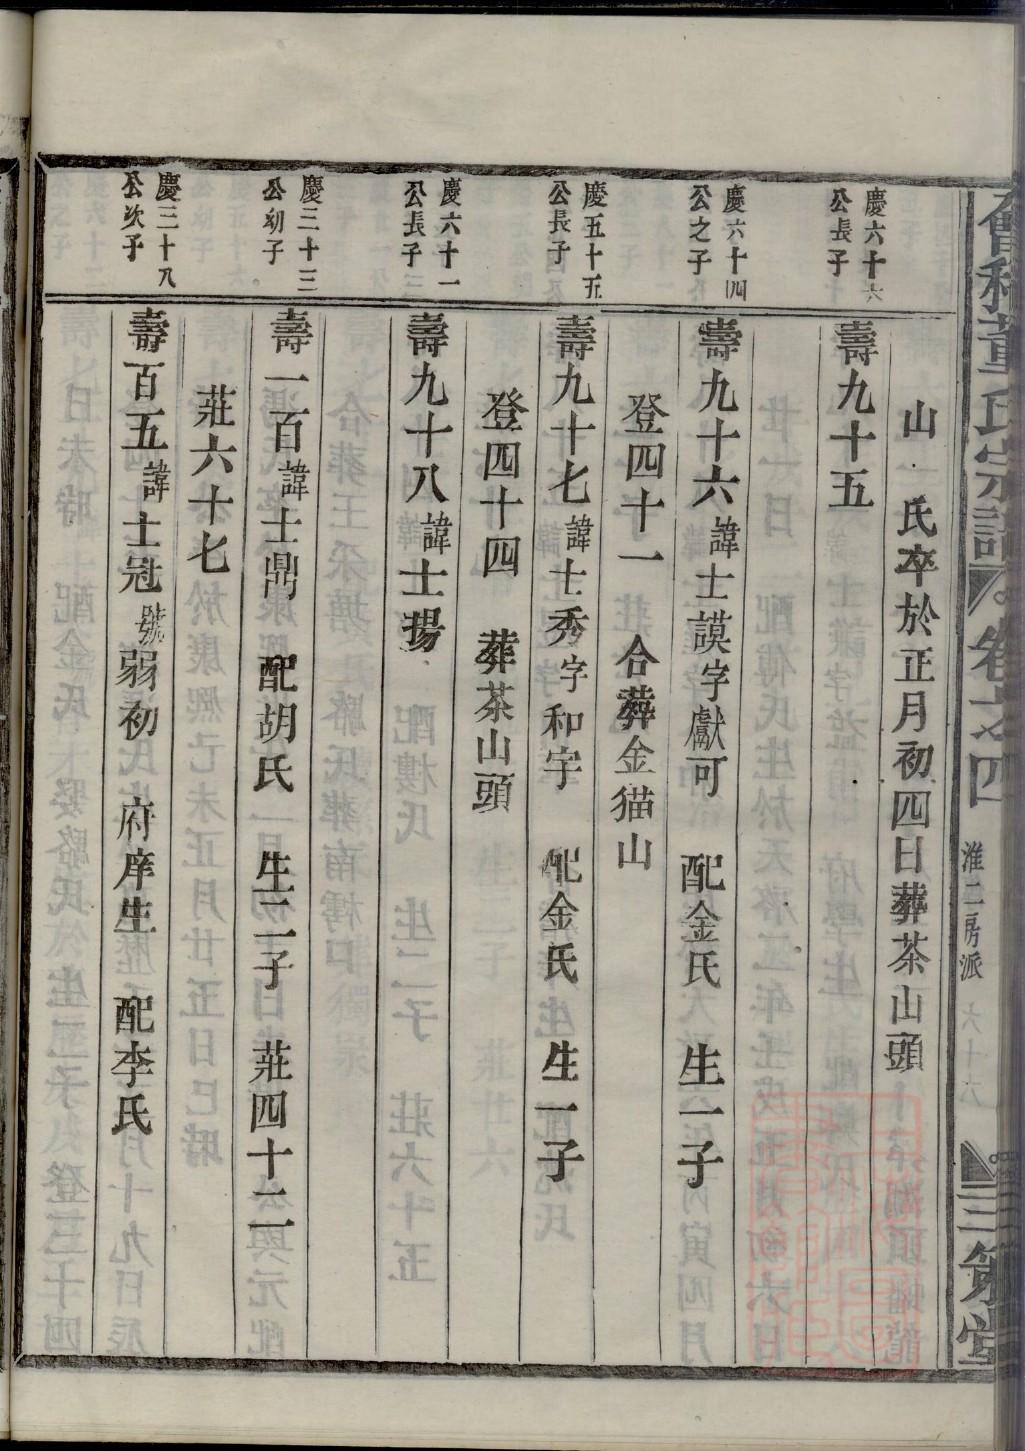 會稽董氏宗譜 卷之四 淮二房派 六十六 三策堂
山 氏卒於正月初四日葬茶山頭
慶六十六
公長子
壽九十五
慶六十四
公之子
壽九十六諱士謨字獻可 配金氏 生一子
登四十一 合葬金猫山
慶五十五
公長子
壽九十七諱士秀字和宇 配金氏 生一子
登四十四 葬茶山頭
慶六十一
公長子
壽九十八諱士揚
慶三十三
公幼子
壽一百諱士鼎 配胡氏 生二子 莊四十二
莊六十七
慶三十八
公次子
壽百五諱士冠號弱初 府庠生 配李氏